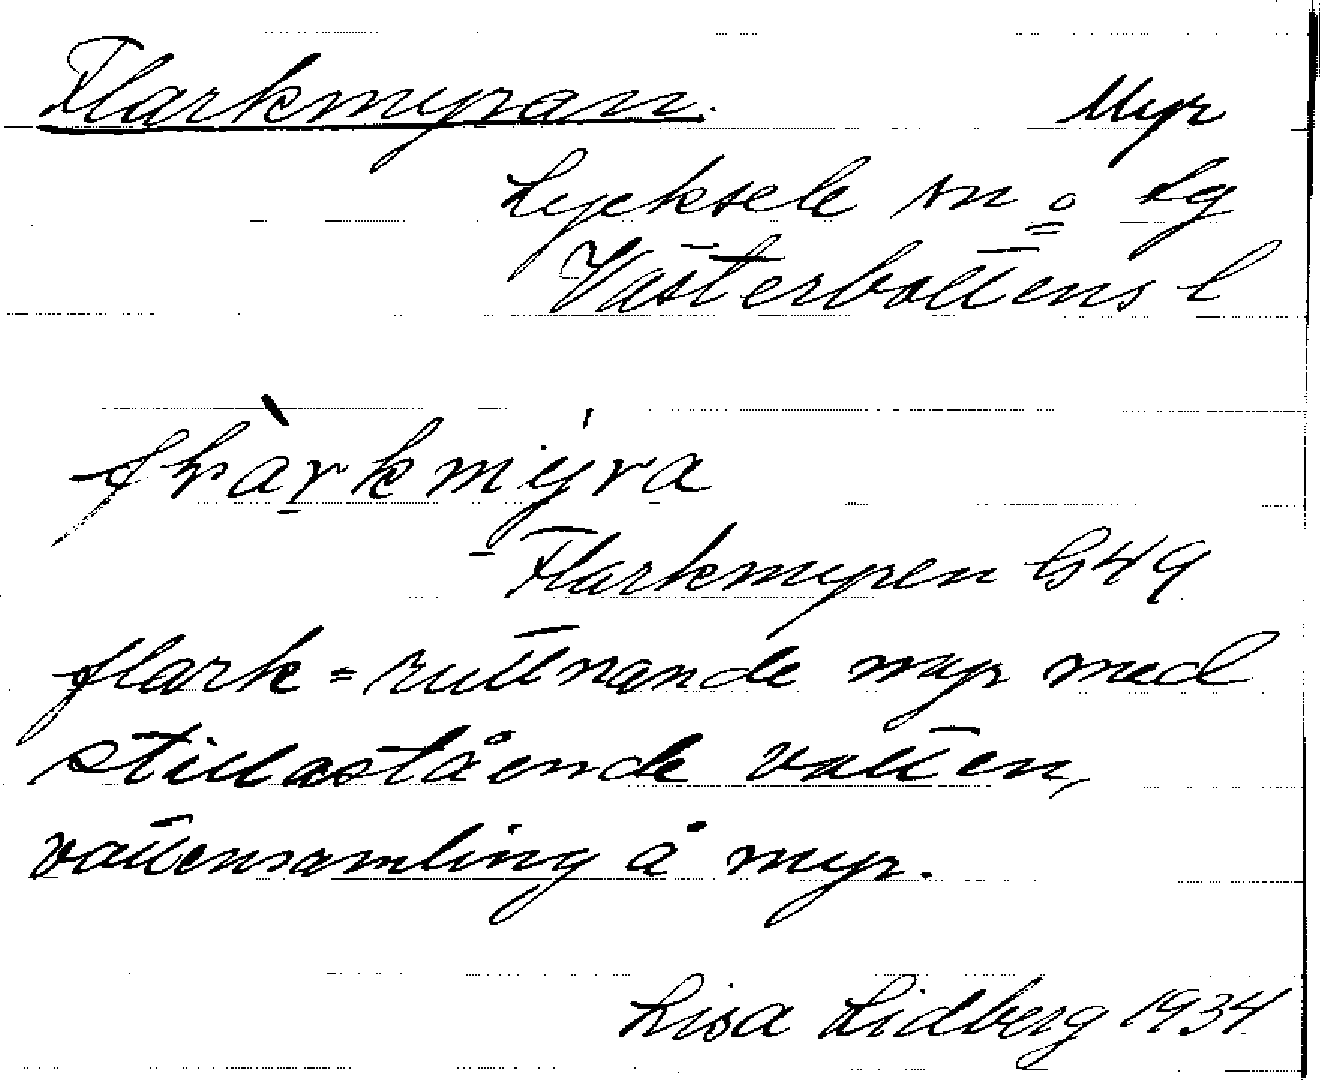 Flarkmyran. Myr
Lycksele sn o Lg
Västerbottens l
Flarkmyren G49
flark = ruttnande myr med
stillastående vatten,
vattensamling å myr.
Lisa Lidberg 1934